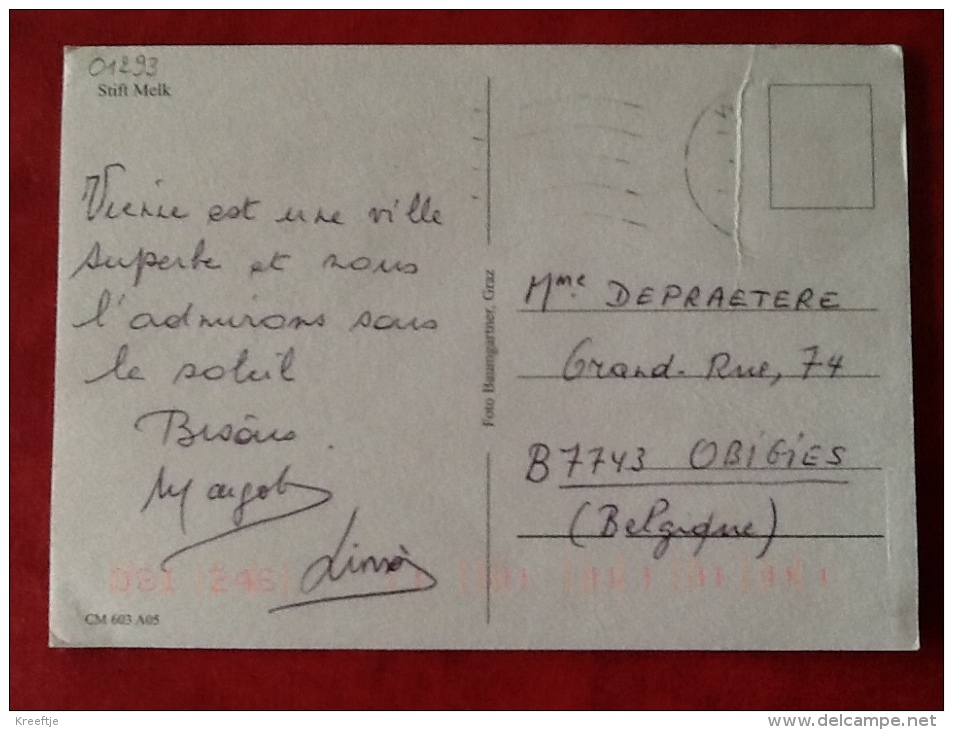 01293
Stift Melk
Vienne est une ville
superbe et nous
l'admirons sous
le soleil
Bisous.
Margot
Mme DEPRAETERE
Grand-Rue, 74
B 7743 OBIGIES
(Belgique)
Foto Baumgartner, Graz
CM 603 A05
Kreeftje
www.delcampe.net